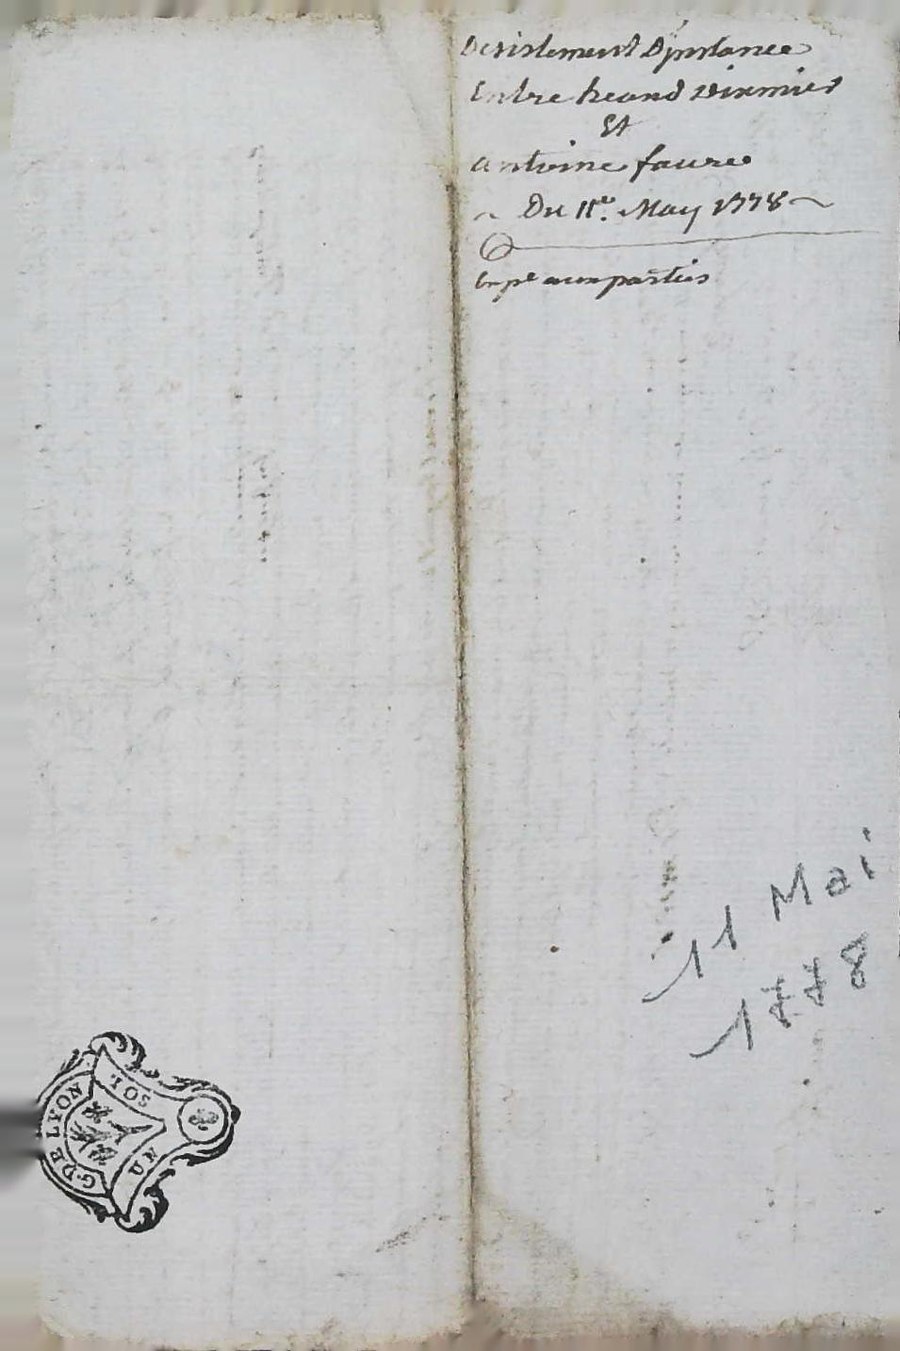 Desistement D'instance
Entre heand
Et
antoine faure
Du 11e. May 1778
aux parties
11 Mai
1778
G. DE LYON
UN SOL